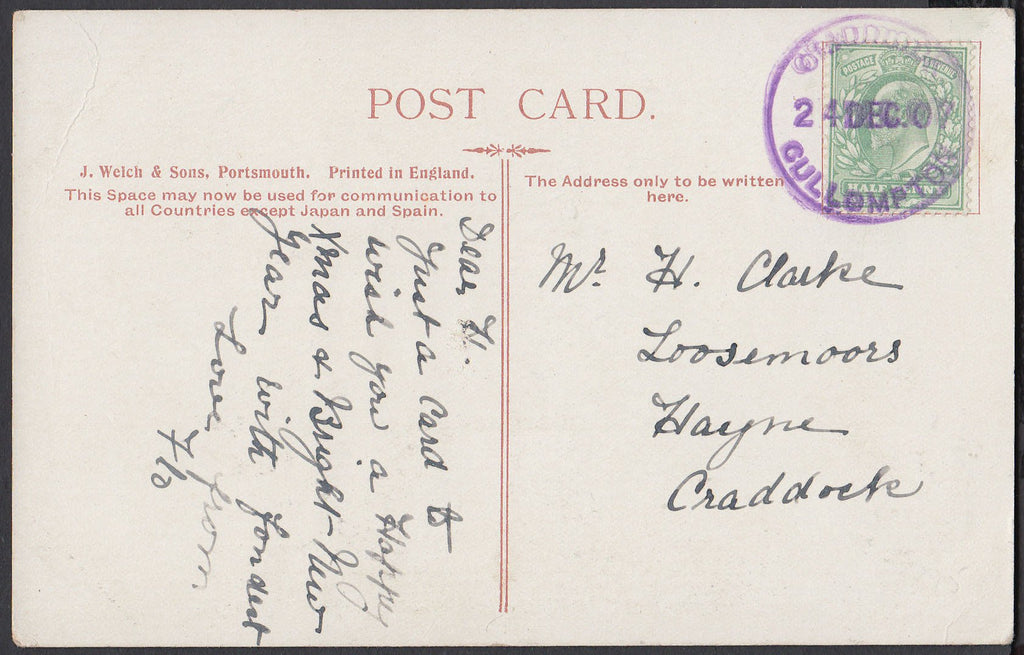 POST CARD.
J. Welch & Sons, Portsmouth. Printed in England.
This Space may now be used for communication to
all Countries except Japan and Spain.
The Address only to be written
here.
POSTAGE
HALFPENNY
24 DEC. 07
CULLOMPTON
Dear H.
Just a Card to
wish you a Happy
Xmas & Bright New
Year with fondest
Love from
Mr. H. Clarke
Loosemoors
Hayne
Craddock